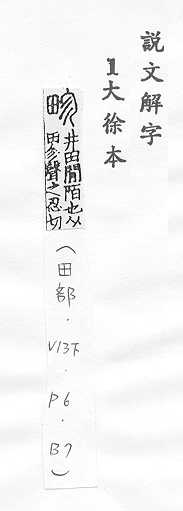 説文解字
1大徐本
畛 井田閒陌也从
田㐱聲之忍切
(田部．V13下．P6．B7)